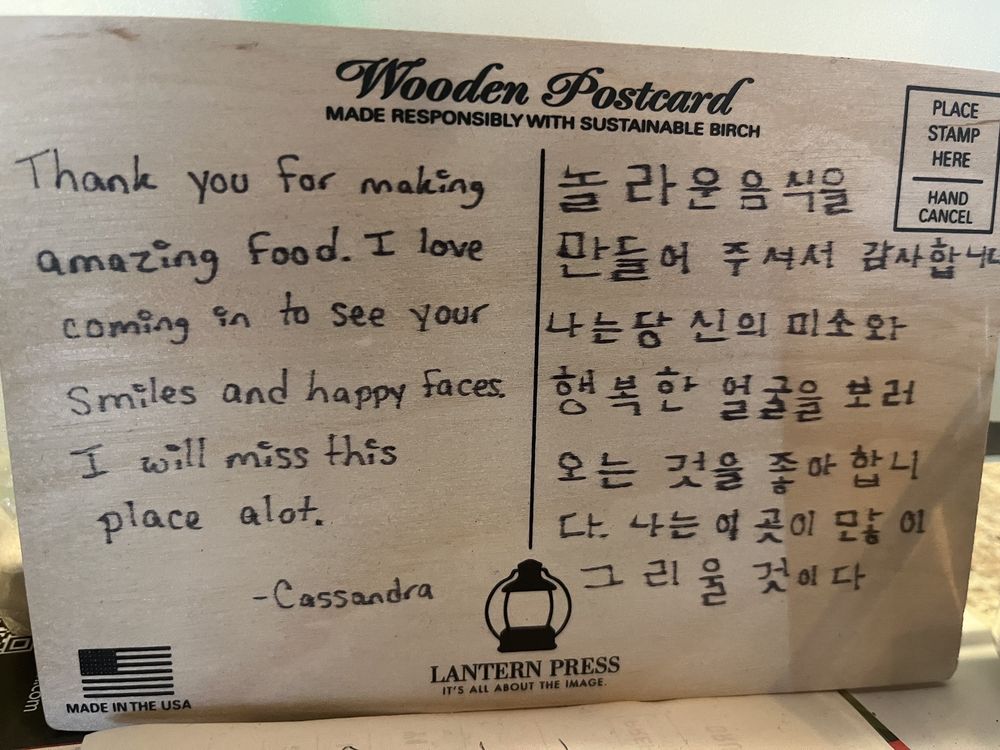 Wooden Postcard
MADE RESPONSIBLY WITH SUSTAINABLE BIRCH
PLACE
STAMP
HERE
HAND
CANCEL
Thank you for making
amazing food. I love
coming in to see your
Smiles and happy faces.
I will miss this
place alot.
-Cassandra
놀라운음식을
만들어 주셔서 감사합니다
나는당신의 미소와
행복한 얼굴을 보러
오는 것을 좋아합니
다. 나는 이 곳이 많이
그리울 것이다
LANTERN PRESS
IT'S ALL ABOUT THE IMAGE.
MADE IN THE USA